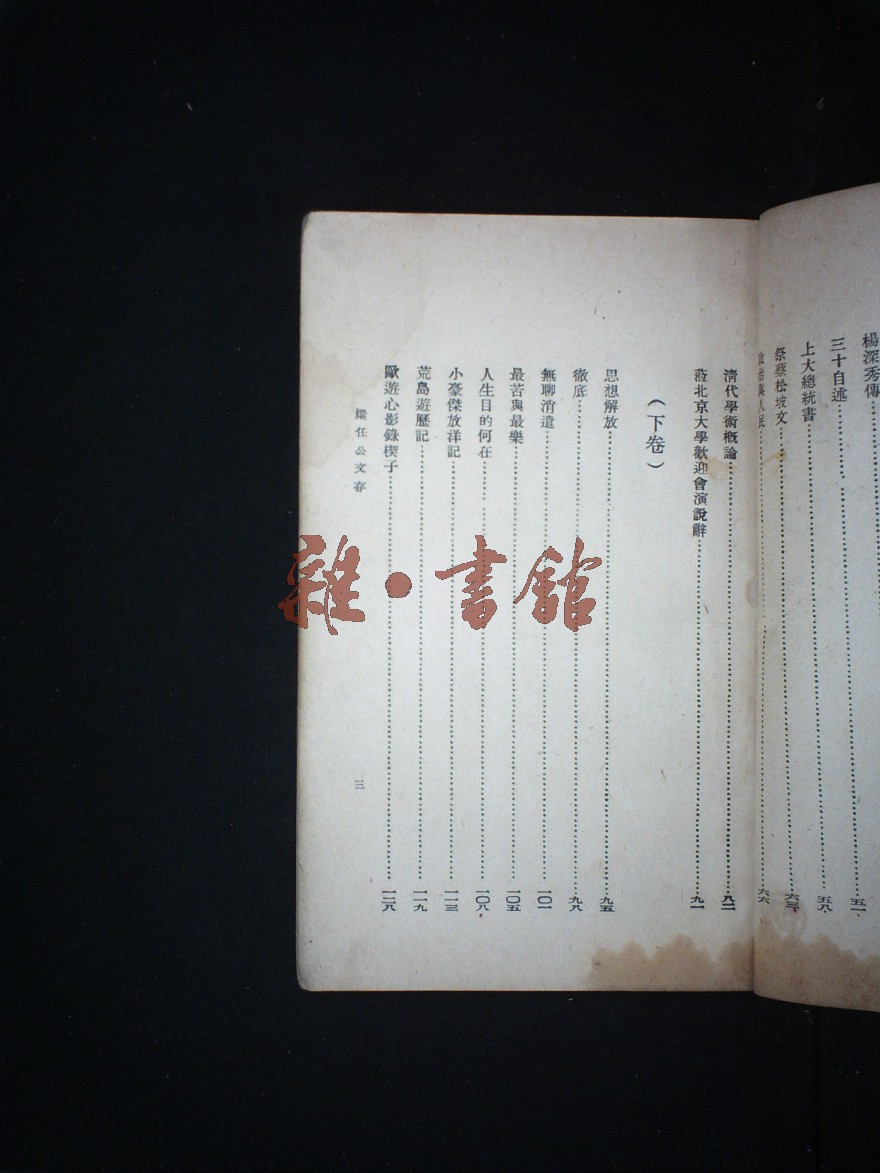 楊深秀傳
三十自述 五一
上大總統書 五八
祭蔡松坡文 六三
政治與人民 六六
清代學術概論 八二
蒞北京大學歡迎會演說辭 九一
（下卷）
思想解放 九五
徹底 九八
無聊消遣 一〇一
最苦與最樂 一〇五
人生目的何在 一〇八
小豪傑放洋記 一一三
荒島遊歷記 一一九
歐遊心影錄楔子 一二八
梁任公文存 三
雜·書館